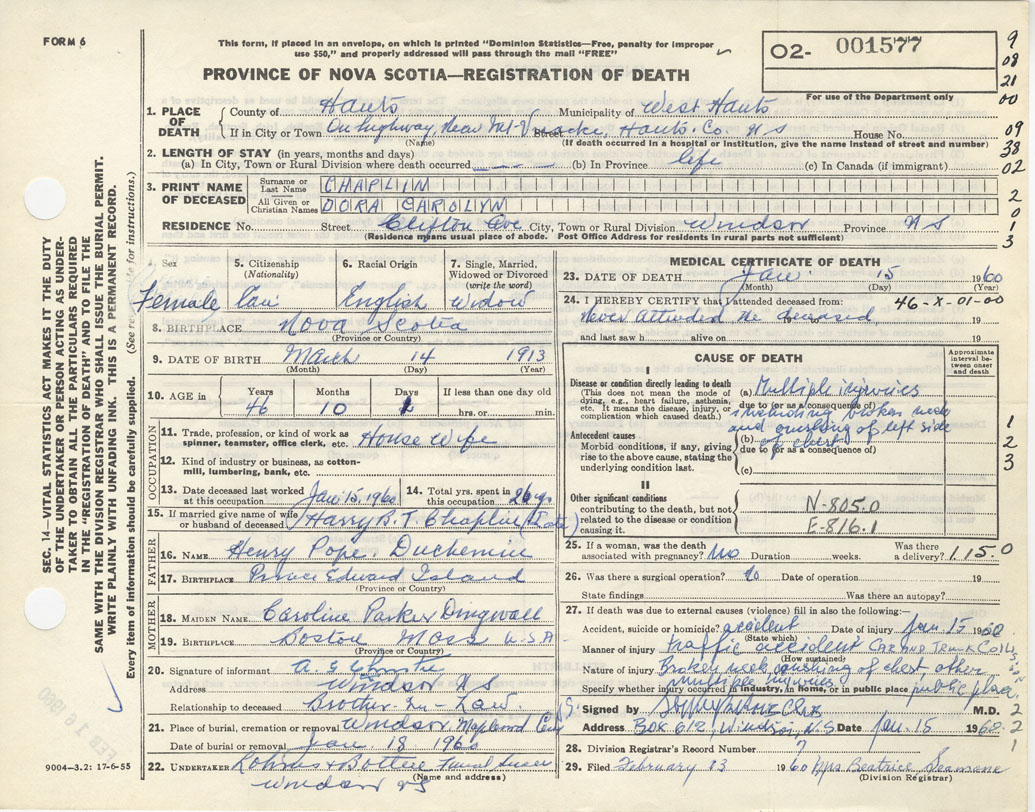 FORM 6
This form, if placed in an envelope, on which is printed "Dominion Statistics—Free, penalty for improper
use $50," and properly addressed will pass through the mail "FREE"
PROVINCE OF NOVA SCOTIA—REGISTRATION OF DEATH
O2- 001577
For use of the Department only
9
08
21
00
09
38
02
2
0
1
3
SEC. 14—VITAL STATISTICS ACT MAKES IT THE DUTY
OF THE UNDERTAKER OR PERSON ACTING AS UNDER-
TAKER TO OBTAIN ALL THE PARTICULARS REQUIRED
IN THE "REGISTRATION OF DEATH" AND TO FILE THE
SAME WITH THE DIVISION REGISTRAR WHO SHALL ISSUE THE BURIAL PERMIT.
WRITE PLAINLY WITH UNFADING INK. THIS IS A PERMANENT RECORD.
Every item of information should be carefully supplied. (See reverse side for instructions.)
1. PLACE OF DEATH
County of Hants Municipality of West Hants
If in City or Town On highway, Near Mt-V Street cke, Hants. Co. N S House No.
(Name) (If death occurred in a hospital or institution, give the name instead of street and number)
2. LENGTH OF STAY (in years, months and days)
(a) In City, Town or Rural Division where death occurred (b) In Province life (c) In Canada (if immigrant)
3. PRINT NAME OF DECEASED
Surname or Last Name CHAPLIN
All Given or Christian Names DORA CAROLYN
RESIDENCE No. Street Clifton Ave City, Town or Rural Division Windsor Province N S
(Residence means usual place of abode. Post Office Address for residents in rural parts not sufficient)
Sex 5. Citizenship (Nationality) 6. Racial Origin 7. Single, Married, Widowed or Divorced (write the word)
Female Can English Widow
8. BIRTHPLACE Nova Scotia
(Province or Country)
9. DATE OF BIRTH March 14 1913
(Month) (Day) (Year)
10. AGE in Years Months Days If less than one day old
46 10 hrs. or min.
OCCUPATION
11. Trade, profession, or kind of work as
spinner, teamster, office clerk, etc. House Wife
12. Kind of industry or business, as cotton-
mill, lumbering, bank, etc.
13. Date deceased last worked at this occupation Jan 15, 1960 14. Total yrs. spent in this occupation 26 yrs
15. If married give name of wife or husband of deceased Harry B. T. Chaplin (Late)
FATHER
16. NAME Henry Pope Duchemin
17. BIRTHPLACE Prince Edward Island
(Province or Country)
MOTHER
18. MAIDEN NAME Caroline Parker Dingwall
19. BIRTHPLACE Boston Mass U.S.A.
(Province or Country)
20. Signature of informant A. G.
Address Windsor N S
Relationship to deceased Brother-In-Law.
21. Place of burial, cremation or removal Windsor, Maplewood Cem
Date of burial or removal Jan. 18 1960
22. UNDERTAKER
Windsor NS (Name and address)
9004—3.2: 17-6-55
FEB 16 1960
MEDICAL CERTIFICATE OF DEATH
23. DATE OF DEATH Jan 15 1960
(Month) (Day) (Year)
24. I HEREBY CERTIFY that I attended deceased from: 46-X-01-00
Never attended the deceased 19
and last saw h alive on 19
CAUSE OF DEATH
Approximate interval between onset and death
I
Disease or condition directly leading to death
(This does not mean the mode of
dying, e.g., heart failure, asthenia,
etc. It means the disease, injury, or
complication which caused death.)
(a) Multiple injuries
due to (or as a consequence of)
including broken neck
and crushing of left side
(b) of chest
due to (or as a consequence of)
(c)
Antecedent causes
Morbid conditions, if any, giving
rise to the above cause, stating the
underlying condition last.
1
2
3
II
Other significant conditions
contributing to the death, but not
related to the disease or condition
causing it.
N-805.0
E-816.1
25. If a woman, was the death associated with pregnancy? No Duration weeks. Was there a delivery? 115.0
26. Was there a surgical operation? No Date of operation 19
State findings Was there an autopsy?
27. If death was due to external causes (violence) fill in also the following:—
Accident, suicide or homicide? accident Date of injury Jan 15 1960
(State which)
Manner of injury traffic accident CAR AND TRUCK COLL
(How sustained)
Nature of injury Broken neck, crushing of chest, other
multiple injuries
Specify whether injury occurred in industry, in home, or in public place public place
Signed by M.D.
Address Box 612, Windsor, N.S Date Jan. 15 1960
28. Division Registrar's Record Number 7
29. Filed February 13 1960 Mrs Beatrice Seamans
(Division Registrar)